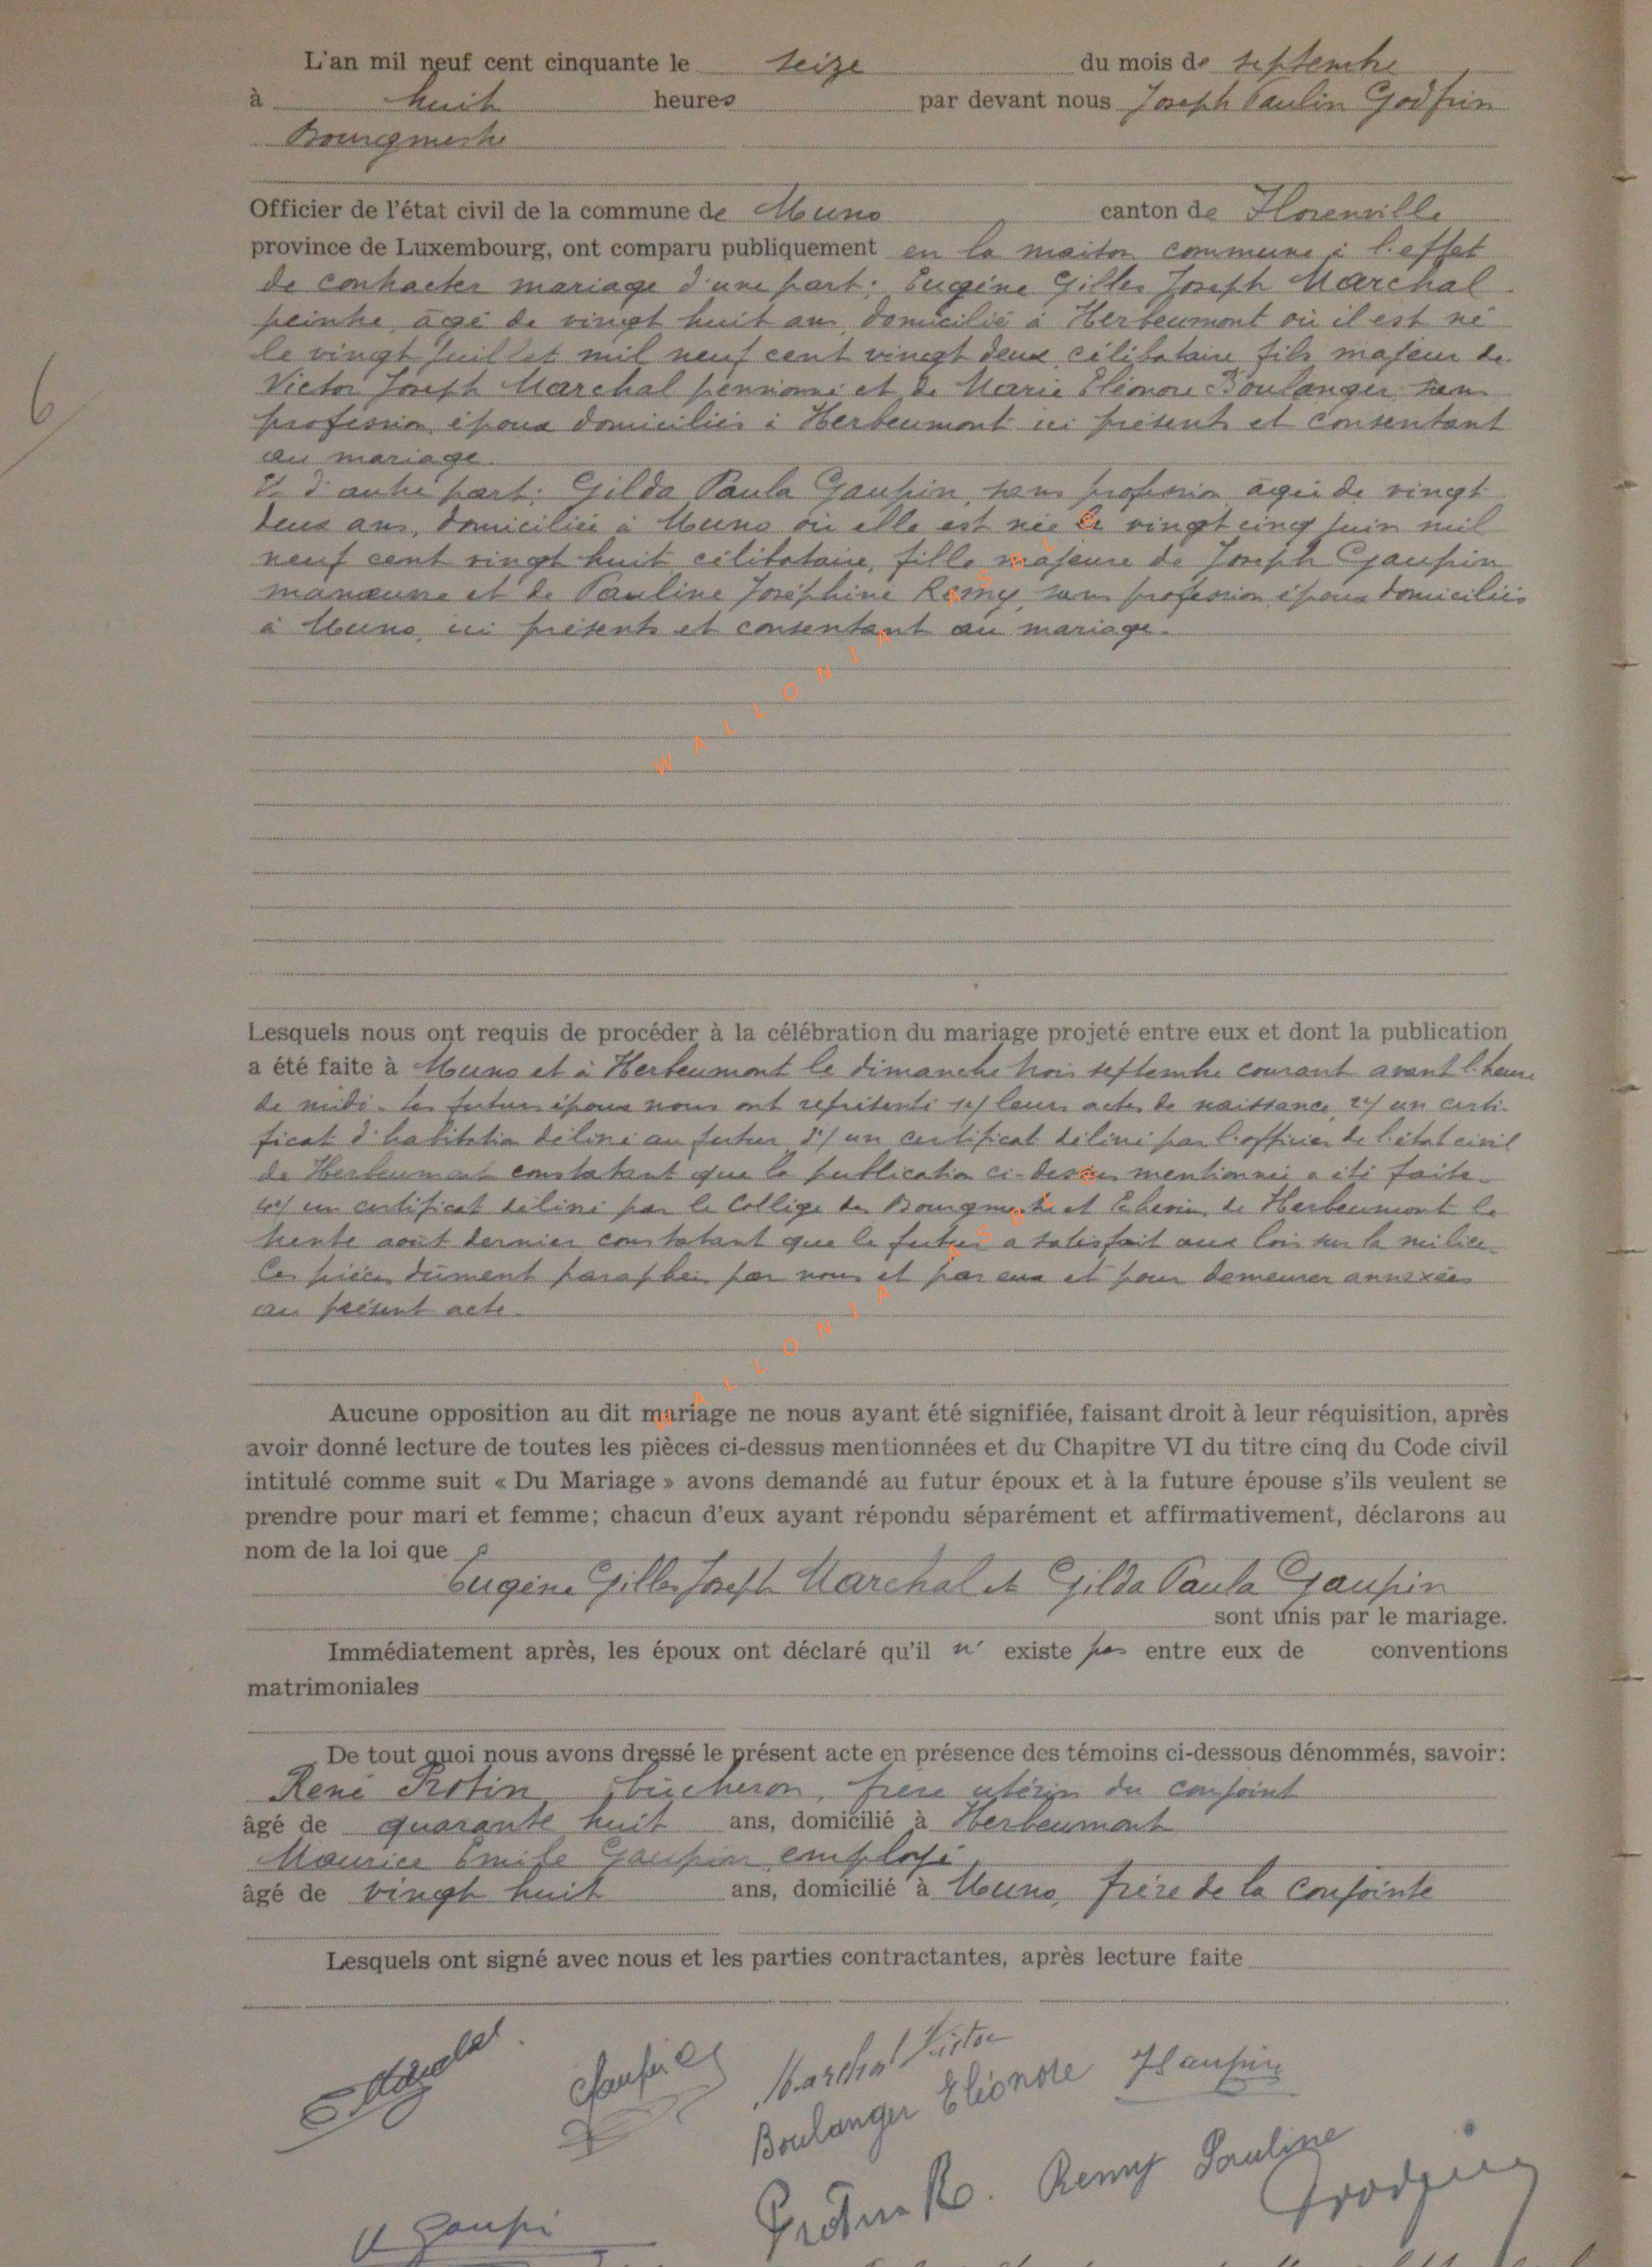 L'an mil neuf cent cinquante le seize du mois de septembre
à huit heures par devant nous Joseph Paulin Godfrin
Bourgmestre
Officier de l'état civil de la commune de Muno canton de Florenville
province de Luxembourg, ont comparu publiquement en la maison commune à l'effet
de contracter mariage d'une part: Eugène Gilles Joseph Marchal
peintre, âgé de vingt huit ans, domicilié à Herbeumont où il est né
le vingt juillet mil neuf cent vingt deux, célibataire fils majeur de
Victor Joseph Marchal pensionné et de Marie Eléonore Boulanger sans
profession, époux domiciliés à Herbeumont ici présents et consentant
au mariage.
Et d'autre part: Gilda Paula Gaupin, sans profession âgée de vingt
deux ans, domiciliée à Muno où elle est née le vingt cinq juin mil
neuf cent vingt huit célibataire, fille majeure de Joseph Gaupin
manœuvre et de Pauline Joséphine Remy, sans profession, époux domiciliés
à Muno, ici présents et consentant au mariage.
WALLONIA
Lesquels nous ont requis de procéder à la célébration du mariage projeté entre eux et dont la publication
a été faite à Muno et à Herbeumont le dimanche trois septembre courant avant l'heure
de midi. Les futurs époux nous ont représenté 1°/ leurs actes de naissance, 2°/ un certi-
ficat d'habitation délivré au futur 3°/ un certificat délivré par l'officier de l'état civil
de Herbeumont constatant que la publication ci-dessus mentionnée a été faite.
4°/ un certificat délivré par le Collège des Bourgmestre et Echevins de Herbeumont le
trente août dernier constatant que le futur a satisfait aux lois sur la milice.
Ces pièces dûment paraphées par nous et par eux et pour demeurer annexées
au présent acte.
WALLONIA
Aucune opposition au dit mariage ne nous ayant été signifiée, faisant droit à leur réquisition, après
avoir donné lecture de toutes les pièces ci-dessus mentionnées et du Chapitre VI du titre cinq du Code civil
intitulé comme suit « Du Mariage » avons demandé au futur époux et à la future épouse s'ils veulent se
prendre pour mari et femme; chacun d'eux ayant répondu séparément et affirmativement, déclarons au
nom de la loi que
Eugène Gilles Joseph Marchal et Gilda Paula Gaupin
sont unis par le mariage.
Immédiatement après, les époux ont déclaré qu'il n' existe pas entre eux de conventions
matrimoniales
De tout quoi nous avons dressé le présent acte en présence des témoins ci-dessous dénommés, savoir:
René Protin, bûcheron, frère utérin du conjoint
âgé de quarante huit ans, domicilié à Herbeumont
Maurice Emile Gaupin employé
âgé de vingt huit ans, domicilié à Muno, frère de la conjointe
Lesquels ont signé avec nous et les parties contractantes, après lecture faite
Marchal Victor
Boulanger Eléonore
Protin R. Remy Pauline
6